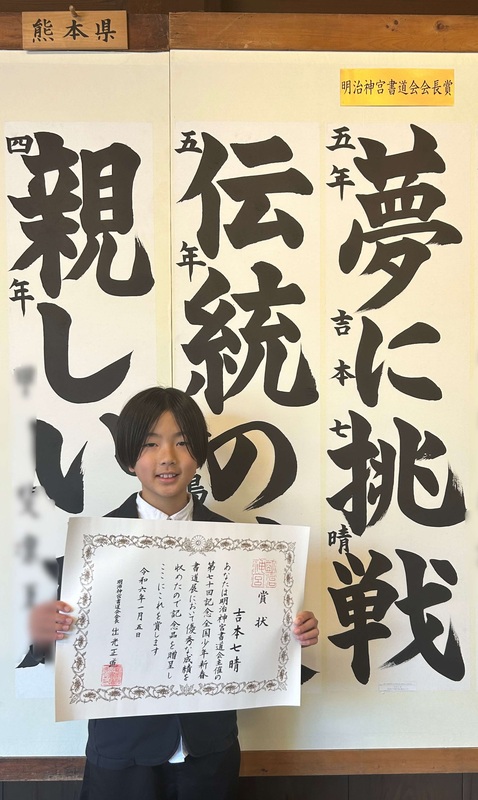 熊本県
明治神宮書道会会長賞
夢に挑戦
五年 吉本七晴
伝統の
五年
親しい
四年
賞状
吉本七晴
あなたは明治神宮書道会主催の
第七十回記念全国少年新春
書道展において優秀な成績を
収めたので記念品を贈呈し
ここにこれを賞します
令和六年一月五日
明治神宮書道会会長